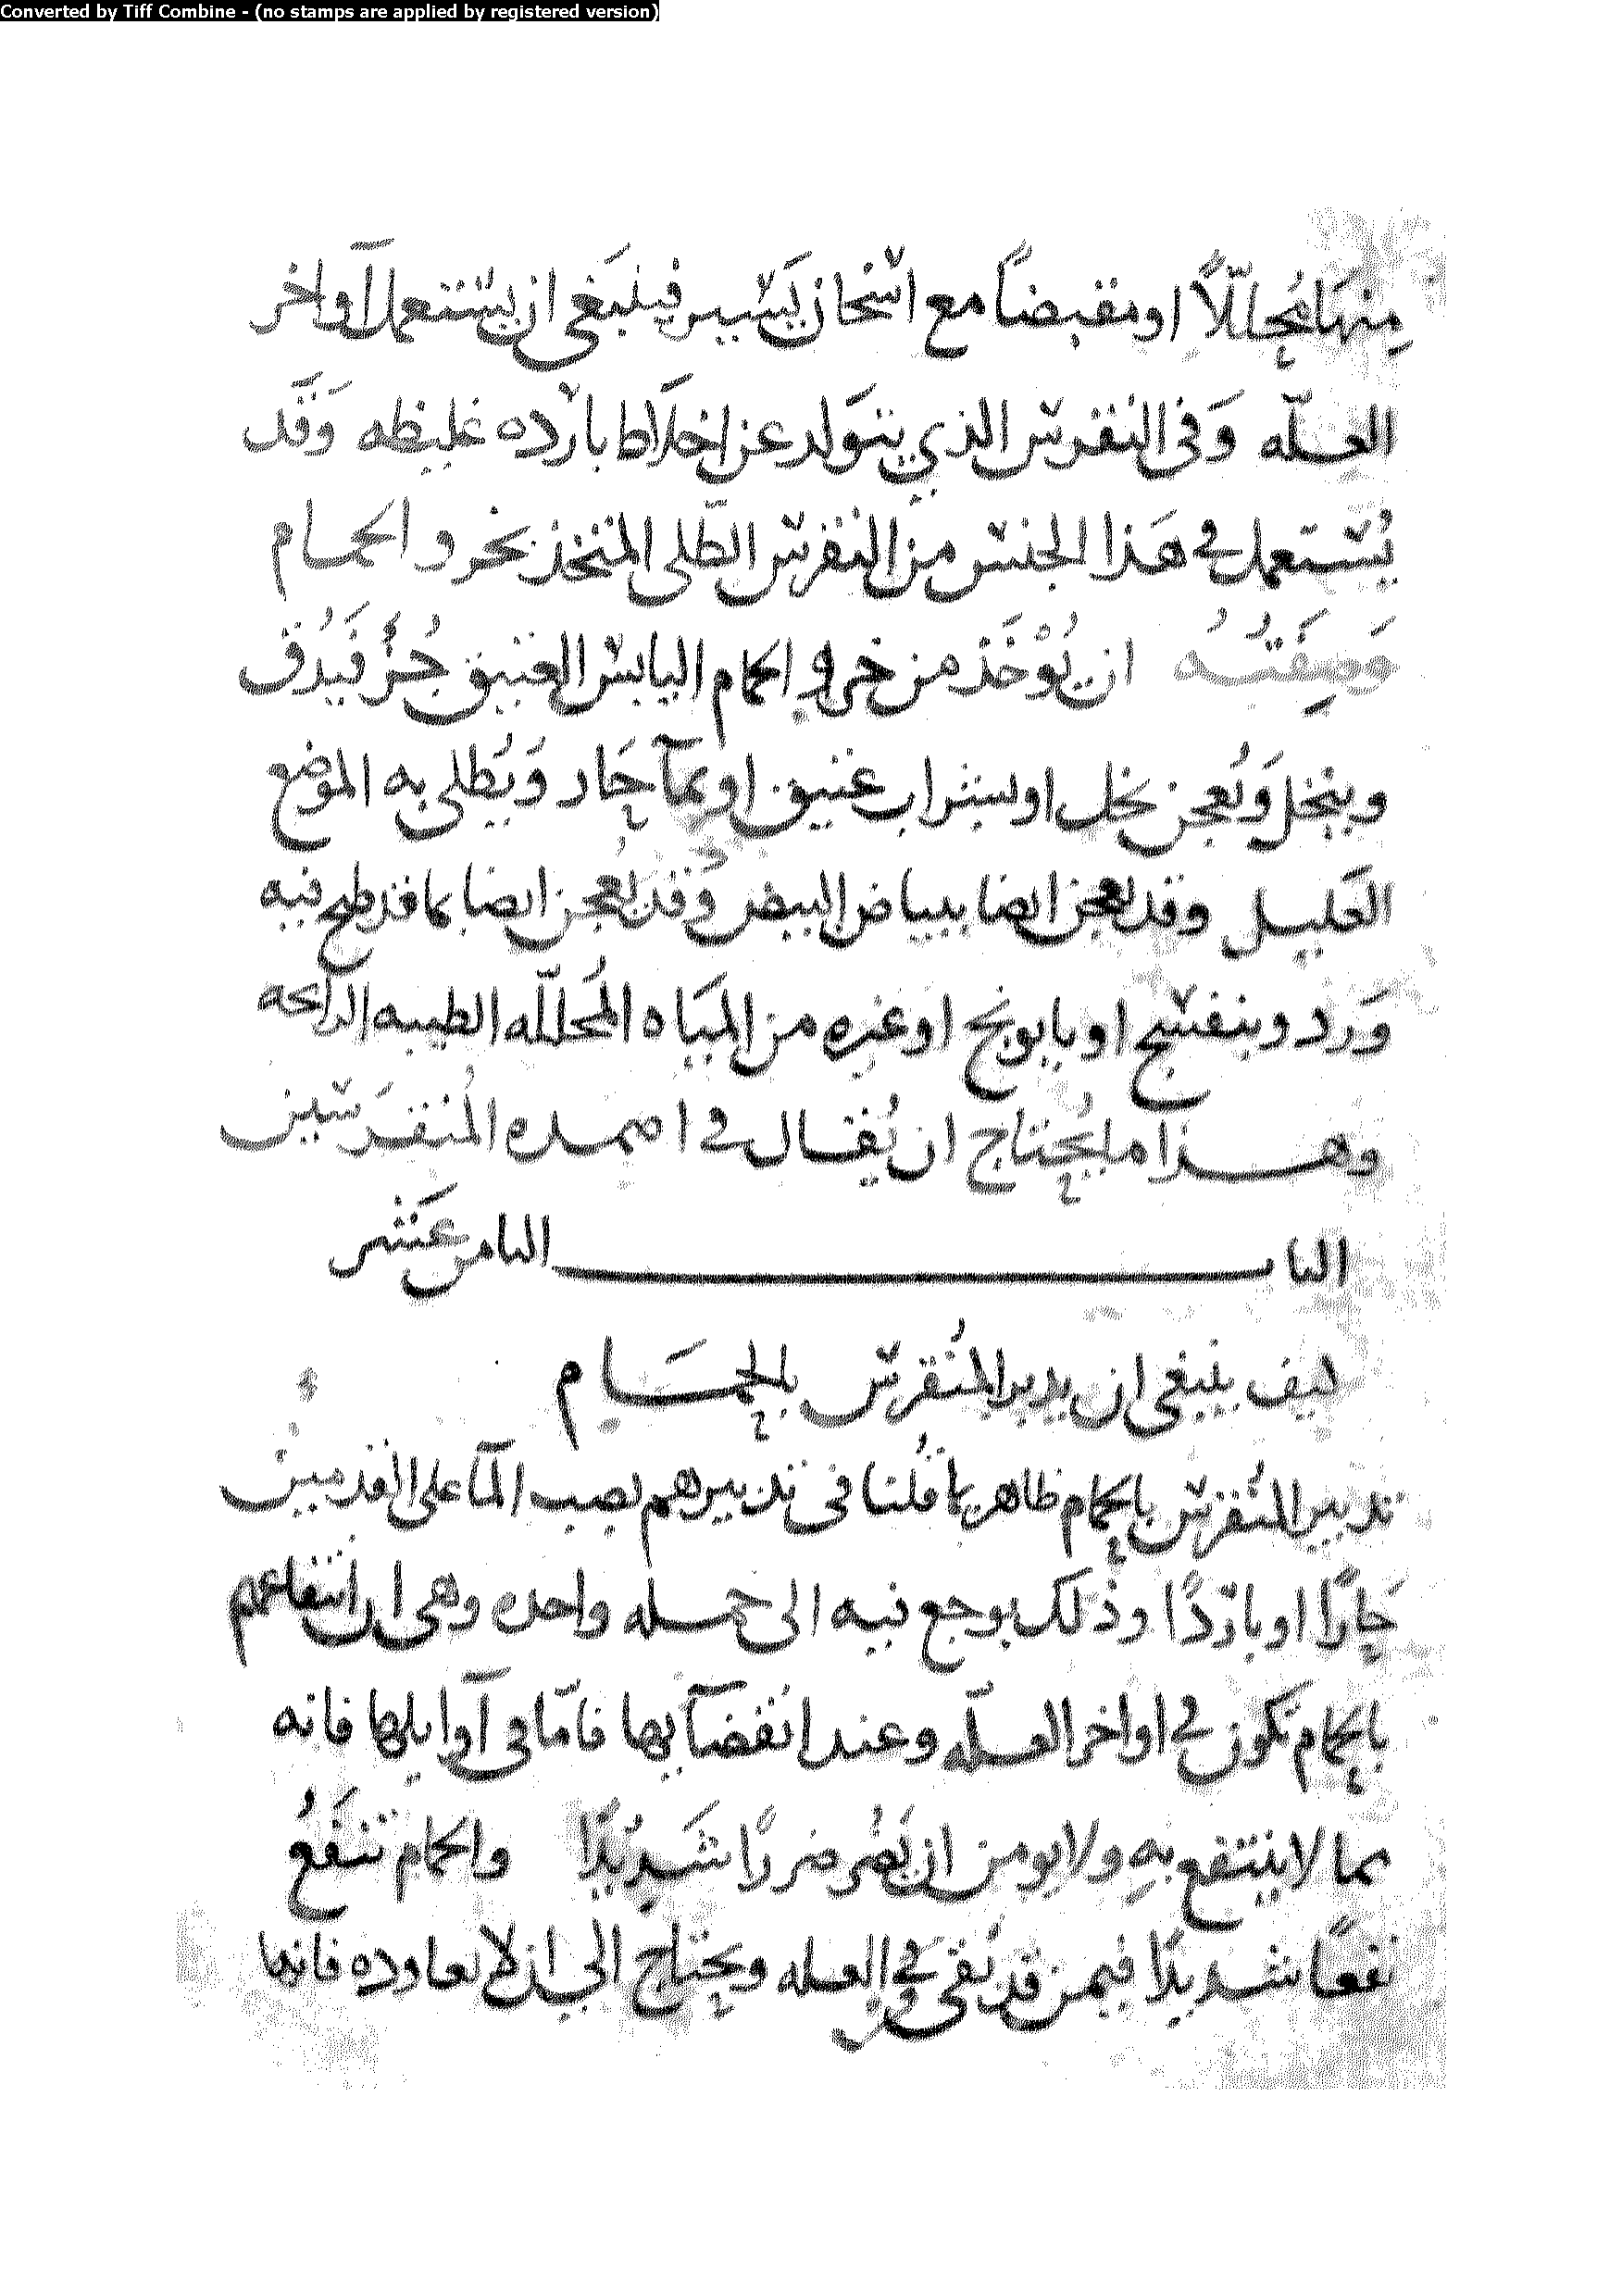 Converted by Tiff Combine - (no stamps are applied by registered version)
مِنهَا مُحِللّاً او مقبضاً مع اسْخان يَسْير فينبَغى ان يسْتعمل آواخر
العِلّه وَفى النقرسْ الذي يتوَلد عن اخلَاط بارْده غليظه وَقَد
يُسْتعمل فى هَذا الجنسْ من النقرسْ الطّلى المتخذ بخرو الحمام
وَصِفَتُه ان يُوْخَذ من خرو الحمام اليابسْ العتيق جُزٌ فَيُدق
وينخل وَيُعجن بخل او بشراب عتيق او بمآ حَار وَيُطلى به الموَضع
العَليل وقد يعجن ايضا ببياض البيض وَقد يُعجن ايضا بما قد طبخ فيه
وَرد وبنفسْج او بابونج او غيره من الميَاه المُحللّه الطيبه الرائحه
وهذا ما يُحتاج ان يُقال فى اضمده المُنقرَسْين
الباب الثامن عَشر
كيف ينبغى ان يدبر المُنقرسْ بالحمَام
تدبير المُنقرسْ بالحمام ظاهر بما قُلنا فى تدبيرهم بصب المآ على القدمين
حَارًا او بارْدًا وذلك يرجع فيه الى جمله واحده وهى ان انتفاعهم
بالحمام تكون فى اواخر العلّه وعند انقضآيها فامّا فى آوايلها فانه
مما لا ينتفع بهِ ولا يومن ان يَضُر ضررًا شَديدًا والحمام تنفَعُ
نفعًا شديدًا فيمن قد نُقى فى العله ويحتاج الي ان لا تعاوده فانها